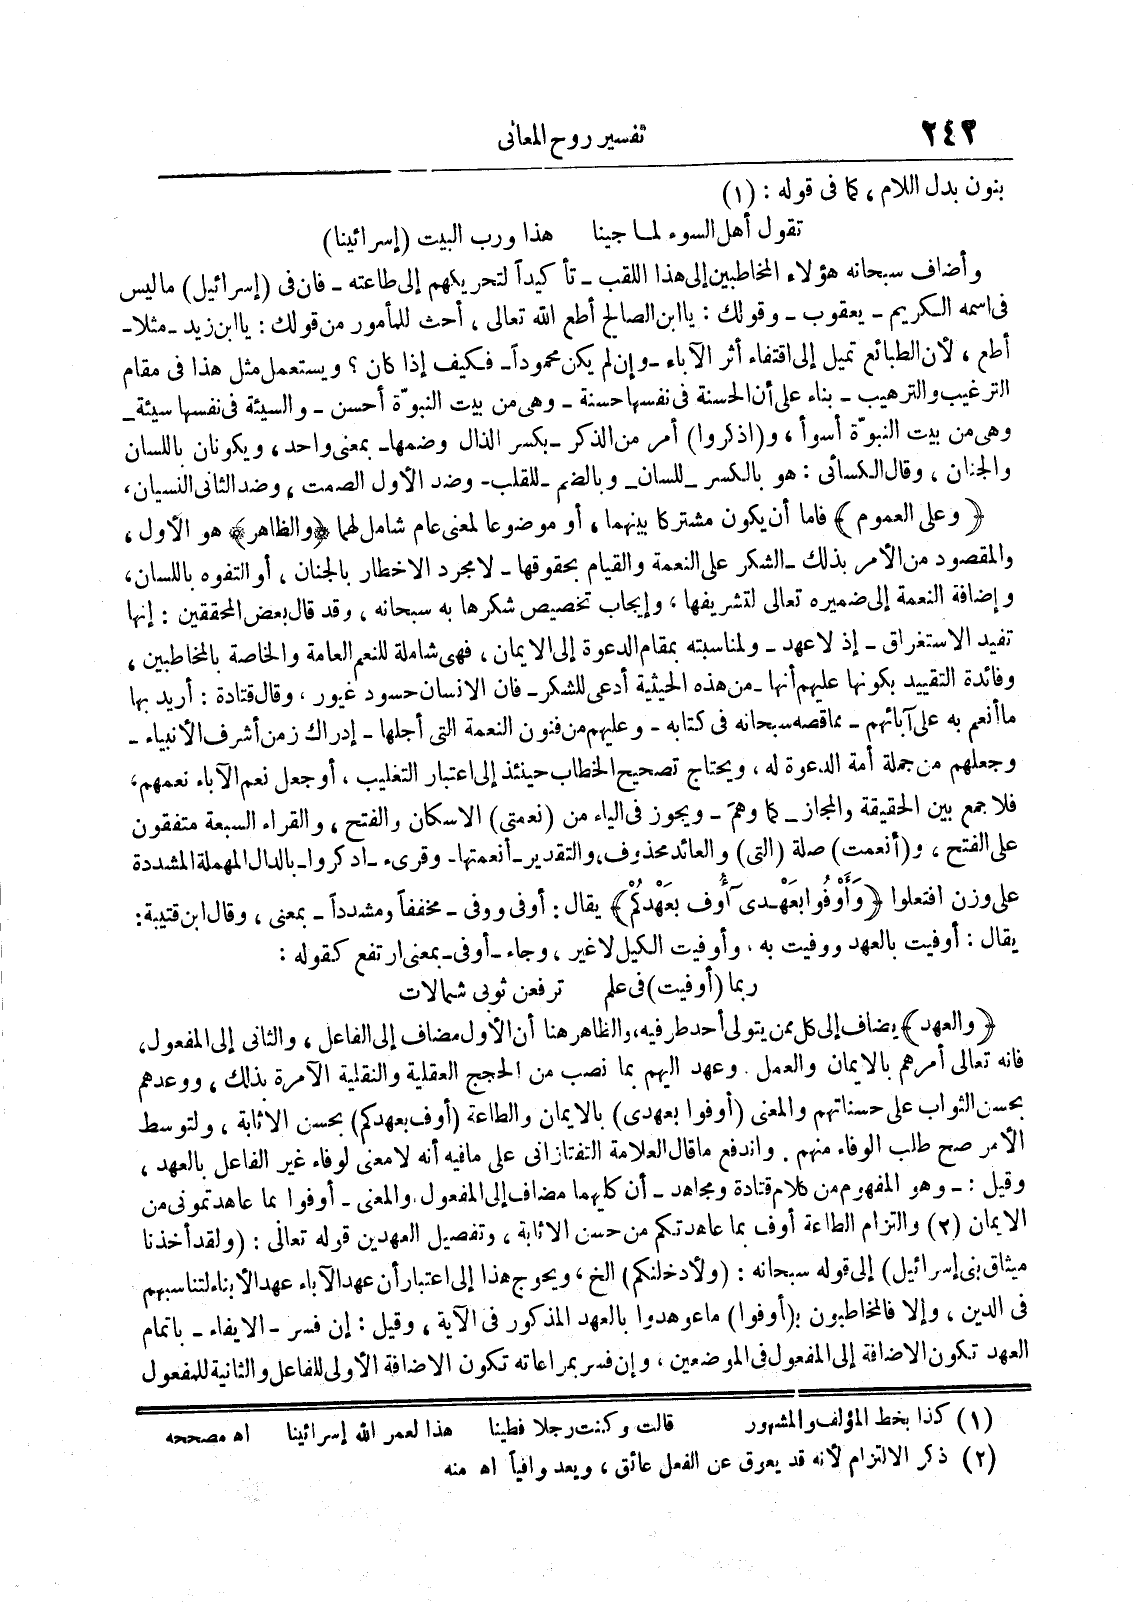 ٢٤٢ تفسير روح المعانى
بنون بدل اللام، كما فى قوله: (١)
تقول أهل السوء لما جينا هذا ورب البيت (إسرائينا)
وأضاف سبحانه هؤلاء المخاطبين إلى هذا اللقب ـ تأكيداً لتحريكهم إلى طاعته ـ فان فى (إسرائيل) ما ليس
فى اسمه الكريم ـ يعقوب ـ وقولك: يا ابن الصالح أطع الله تعالى، أحث للمأمور من قولك: يا ابن زيد ـ مثلا ـ
أطع، لأن الطبائع تميل إلى اقتفاء أثر الآباء ـ وإن لم يكن محموداً ـ فكيف إذا كان؟ ويستعمل مثل هذا فى مقام
الترغيب والترهيب ـ بناء على أن الحسنة فى نفسها حسنة ـ وهى من بيت النبوّة أحسن ـ والسيئة فى نفسها سيئة ـ
وهى من بيت النبوّة أسوأ، و(اذكروا) أمر من الذكر ـ بكسر الذال وضمها ـ بمعنى واحد، ويكونان باللسان
والجنان، وقال الكسائى: هو بالكسر ـ للسان ـ وبالضم ـ للقلب ـ وضد الأول الصمت، وضد الثانى النسيان،
﴿وعلى العموم﴾ فاما أن يكون مشتركا بينهما، أو موضوعا لمعنى عام شامل لهما ﴿والظاهر﴾ هو الأول،
والمقصود من الأمر بذلك ـ الشكر على النعمة والقيام بحقوقها ـ لا مجرد الاخطار بالجنان، أو التفوه باللسان،
وإضافة النعمة إلى ضميره تعالى لتشريفها، وإيجاب تخصيص شكرها به سبحانه، وقد قال بعض المحققين: إنها
تفيد الاستغراق ـ إذ لا عهد ـ ولمناسبته بمقام الدعوة إلى الايمان، فهى شاملة للنعم العامة والخاصة بالمخاطبين،
وفائدة التقييد بكونها عليهم أنها ـ من هذه الحيثية أدعى للشكر ـ فان الانسان حسود غيور، وقال قتادة: أريد بها
ما أنعم به على آبائهم ـ مما قصه سبحانه فى كتابه ـ وعليهم من فنون النعمة التى أجلها ـ إدراك زمن أشرف الأنبياء ـ
وجعلهم من جملة أمة الدعوة له، ويحتاج تصحيح الخطاب حينئذ إلى اعتبار التغليب، أو جعل نعم الآباء نعمهم،
فلا جمع بين الحقيقة والمجاز ـ كما وهم ـ ويجوز فى الياء من (نعمتى) الاسكان والفتح، والقراء السبعة متفقون
على الفتح، و(أنعمت) صلة (التى) والعائد محذوف، والتقدير ـ أنعمتها ـ وقرىء ـ ادكروا ـ بالدال المهملة المشددة
على وزن افتعلوا ﴿وَأَوْفُوا بعَهْدى أُوف بعَهْدكُمْ﴾ يقال: أوفى ووفى ـ مخففاً ومشدداً ـ بمعنى، وقال ابن قتيبة:
يقال: أوفيت بالعهد ووفيت به، وأوفيت الكيل لاغير، وجاء ـ أوفى ـ بمعنى ارتفع كقوله:
ربما (أوفيت) فى علم ترفعن ثوبى شمالات
﴿والعهد﴾ يضاف إلى كل ممن يتولى أحد طرفيه، والظاهر هنا أن الأول مضاف إلى الفاعل، والثانى إلى المفعول،
فانه تعالى أمرهم بالايمان والعمل. وعهد اليهم بما نصب من الحجج العقلية والنقلية الآمرة بذلك، ووعدهم
بحسن الثواب على حسناتهم والمعنى (أوفوا بعهدى) بالايمان والطاعة (أوف بعهدكم) بحسن الاثابة، ولتوسط
الأمر صح طلب الوفاء منهم. واندفع ما قال العلامة التفتازانى على مافيه أنه لامعنى لوفاء غير الفاعل بالعهد،
وقيل: ـ وهو المفهوم من كلام قتادة ومجاهد ـ أن كليهما مضاف إلى المفعول والمعنى ـ أوفوا بما عاهدتمونى من
الايمان (٢) والتزام الطاعة أوف بما عاهدتكم من حسن الاثابة، وتفصيل العهدين قوله تعالى: (ولقد أخذنا
ميثاق بنى إسرائيل) إلى قوله سبحانه: (ولأدخلنكم) الخ، ويحوج هذا إلى اعتبار أن عهد الآباء عهد الأبناء لتناسبهم
فى الدين، وإلا فالمخاطبون ب(أوفوا) ما عوهدوا بالعهد المذكور فى الآية، وقيل: إن فسر ـ الايفاء ـ باتمام
العهد تكون الاضافة إلى المفعول فى الموضعين، وإن فسر بمراعاته تكون الاضافة الأولى للفاعل والثانية للمفعول
(١) كذا بخط المؤلف والمشهور قالت وكنت رجلا فطينا هذا لعمر الله إسرائينا اه مصححه
(٢) ذكر الالتزام لأنه قد يعوق عن الفعل عائق، ويعد وافياً اه منه